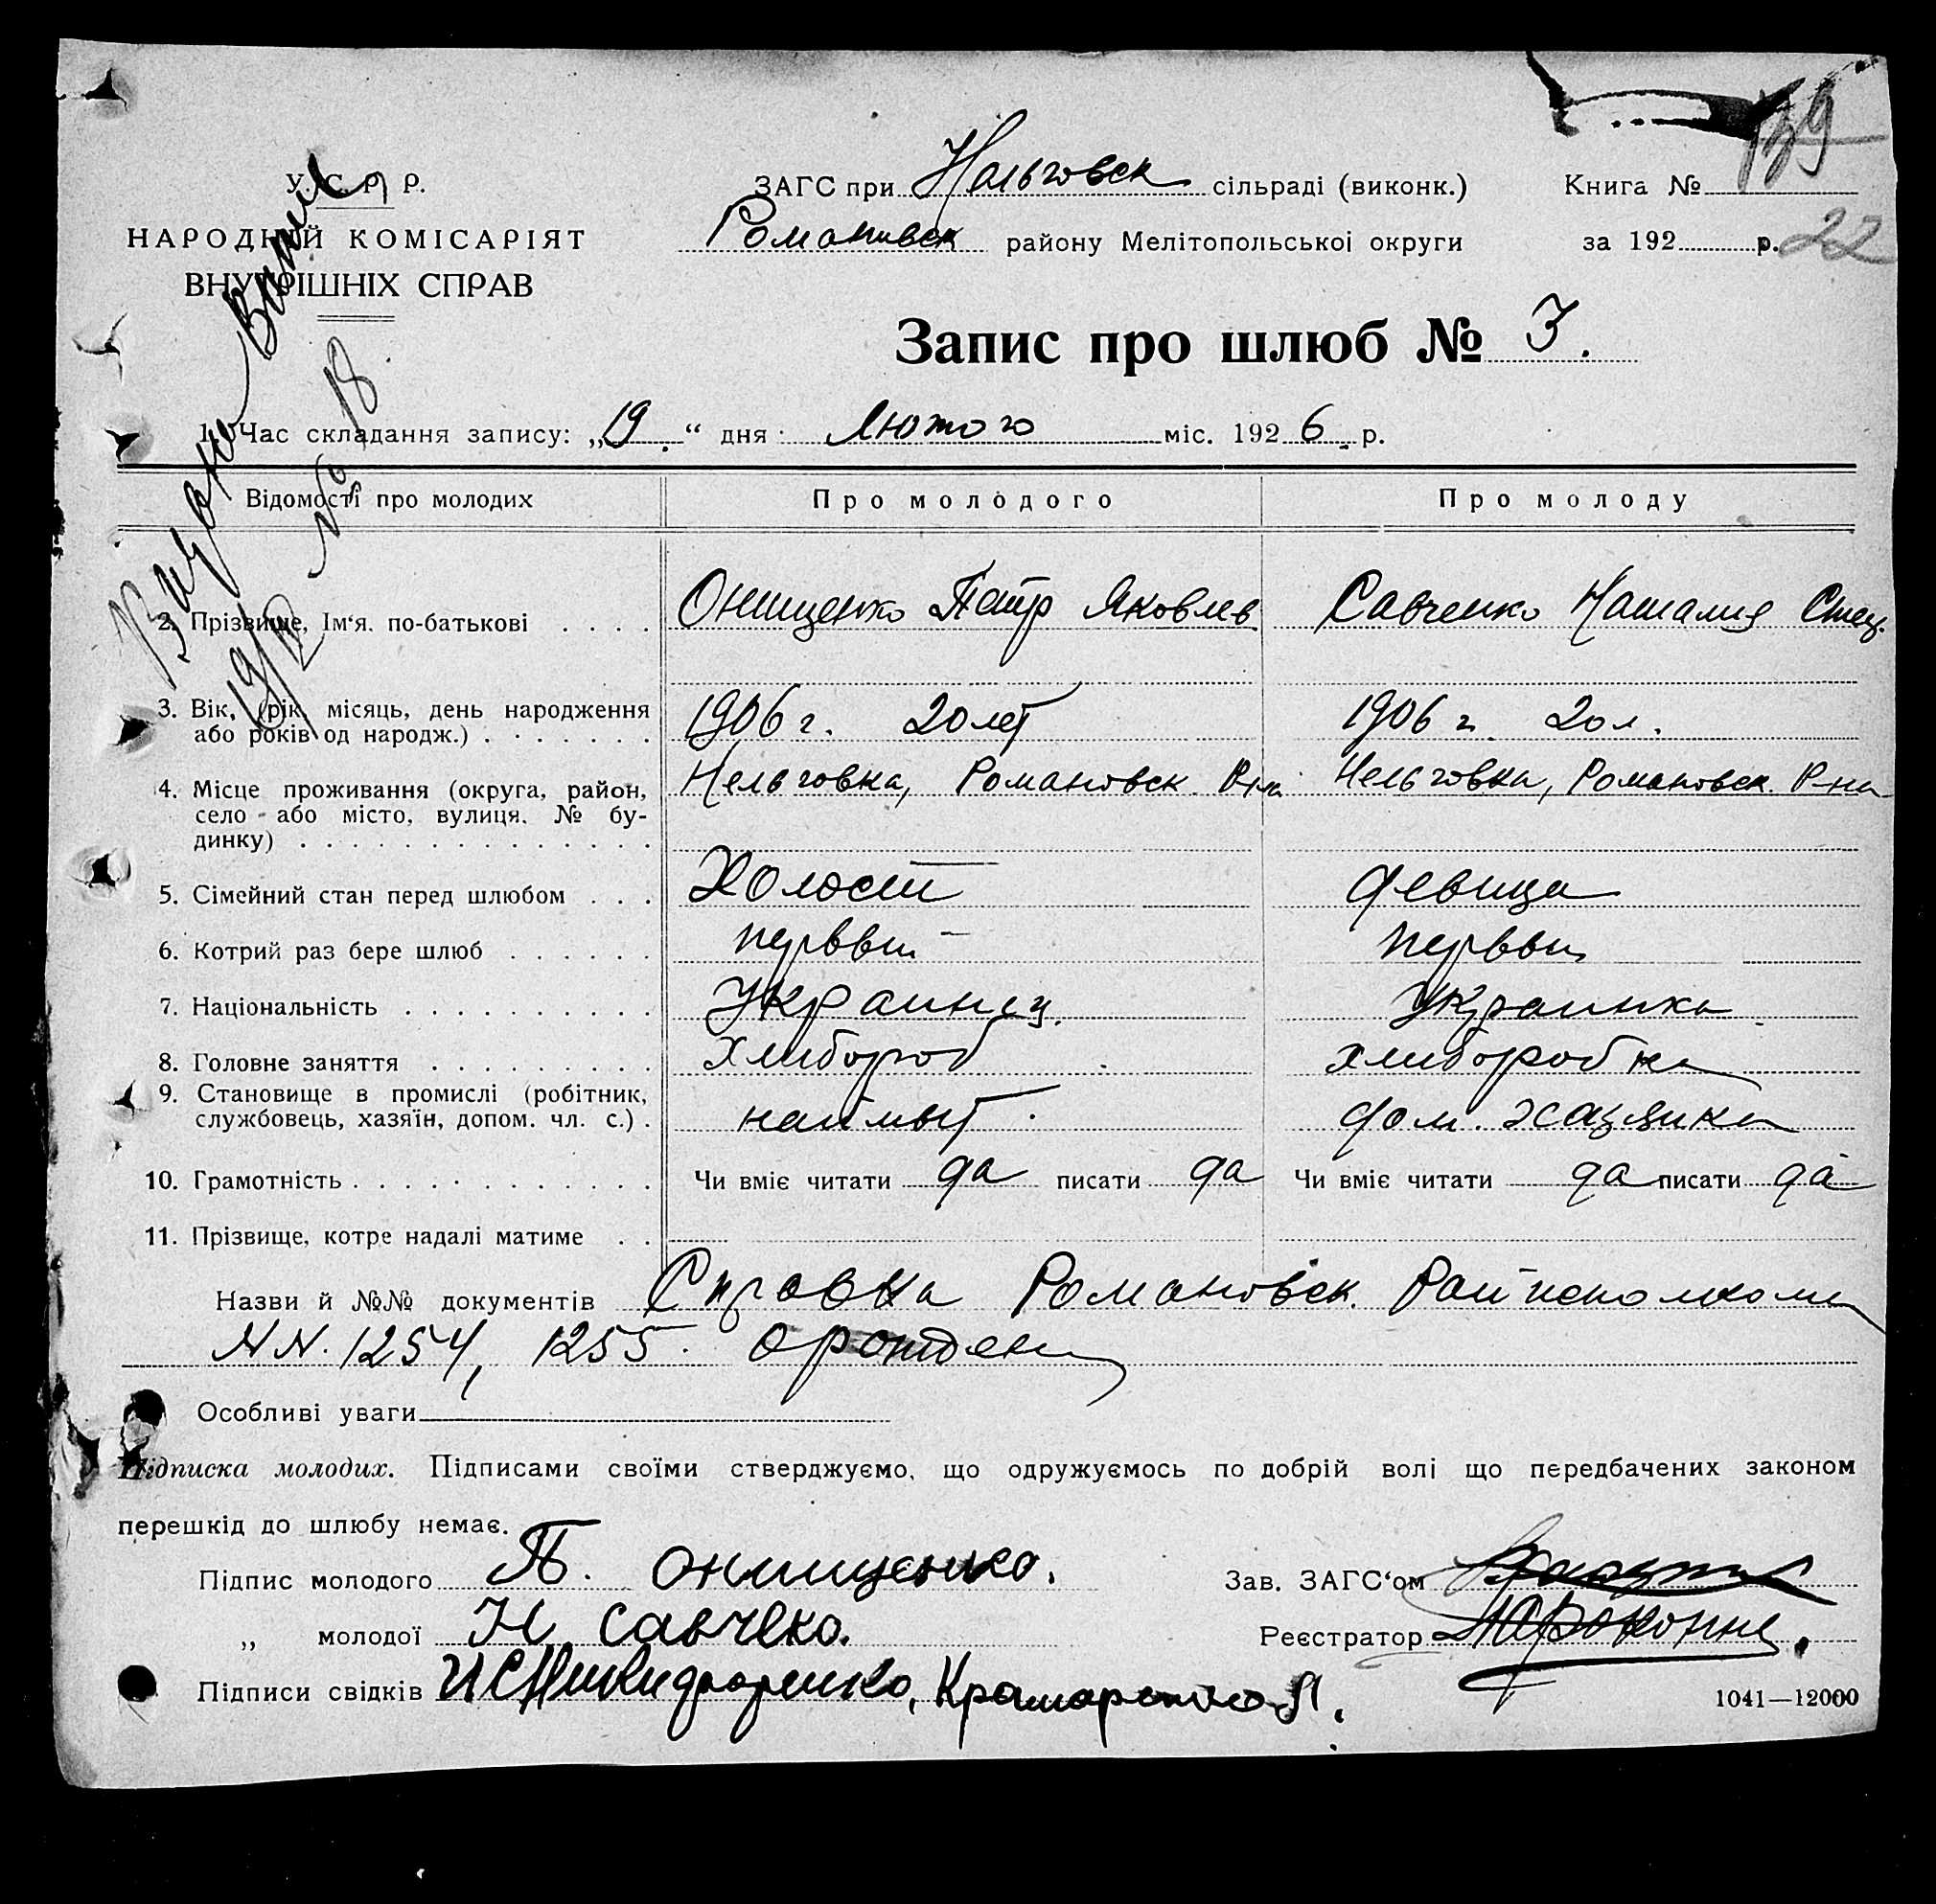 139
У. С. Р. Р.
НАРОДНІЙ КОМІСАРІЯТ
ВНУТРІШНІХ СПРАВ
ЗАГС при Нельговск сільраді (виконк.)
Романивск району Мелітопольської округи
Книга №
за 192 р. 22
Запис про шлюб № 3.
Видано
19/II № 18
1. Час складання запису: „19.“ дня Лютого міс. 1926. р.
Відомості про молодих Про молодого Про молоду
2. Прізвище, Ім'я. по-батькові Онищенко Петр Яковлев Савченко Наталия
3. Вік, (рік, місяць, день народження 1906 г. 20 лет 1906 г. 20 л.
або років од народж.)
4. Місце проживання (округа, район, Нельговка, Романовск. Р-на Нельговка, Романовск. Р-на
село або місто, вулиця, № бу-
динку)
5. Сімейний стан перед шлюбом Холост девица
6. Котрий раз бере шлюб первый первый
7. Національність Украинец. Украинка
8. Головне заняття Хлибороб хлиборобка
9. Становище в промислі (робітник,
службовець, хазяїн, допом. чл. с.) наймыт дом. хазяика
10. Грамотність Чи вміє читати да писати да Чи вміє читати да писати да
11. Прізвище, котре надалі матиме
Назви й №№ документів Справка Романовск. Райисполкома
NN. 1254, 1255. о рожден
Особливі уваги
Підписка молодих. Підписами своїми стверджуємо, що одружуємось по добрій волі що передбачених законом
перешкід до шлюбу немає.
Підпис молодого П. Онищенко. Зав. ЗАГС'ом
„ молодої Н Савчеко. Реєстратор
Підписи свідків Крамаренко Л.
1041—12000